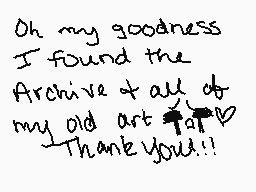 Oh my goodness
I found the
Archive & all of
my old art ♡
Thank You!!!